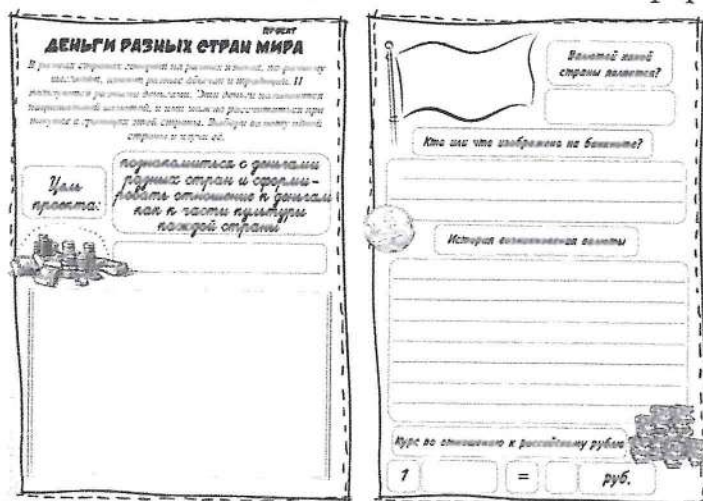 ПРОЕКТ
ДЕНЬГИ РАЗНЫХ СТРАН МИРА
В разных странах говорят на разных языках, по-разному
выглядят, имеют разные обычаи и традиции. И
пользуются разными деньгами. Эти деньги называются
национальной валютой, и ими можно рассчитаться при
покупке в границах этой страны. Выбери валюту одной
страны и изучи её.
Цель
проекта:
познакомиться с деньгами
разных стран и сформи-
ровать отношение к деньгам
как к части культуры
каждой страны
Валютой какой
страны является?
Кто или что изображено на банкноте?
История возникновения валюты
Курс по отношению к российскому рублю
1 = руб.